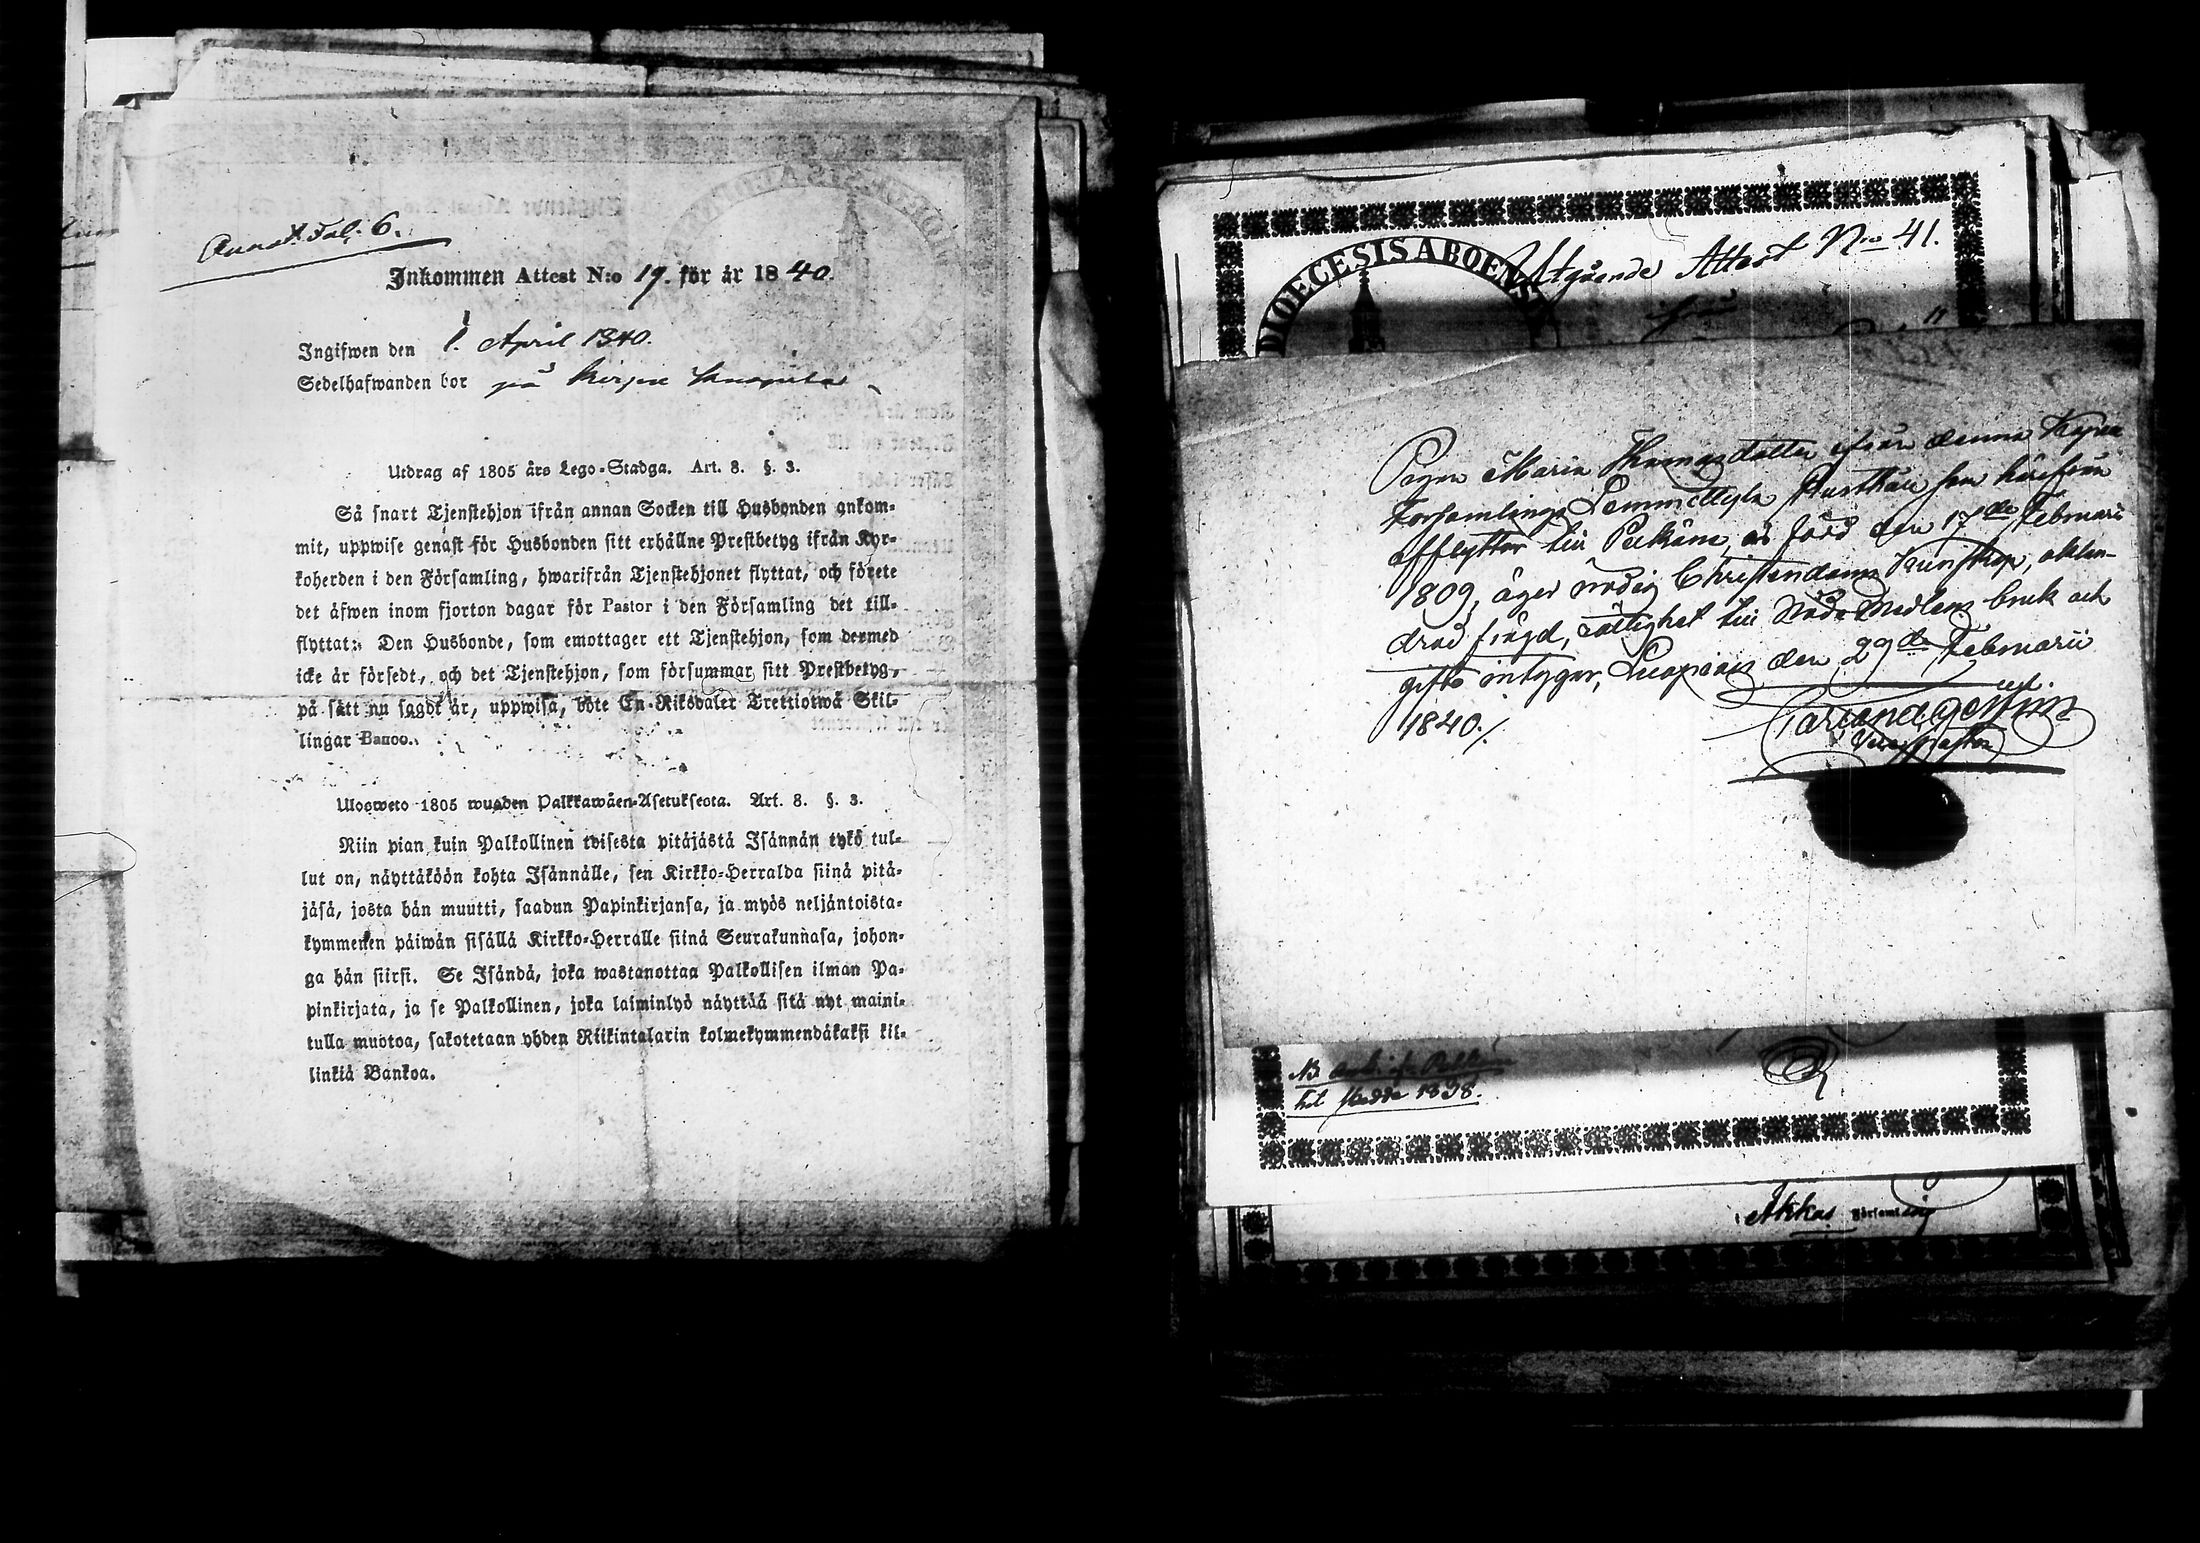 Annot. Fol. 6.
Inkommen Attest N:o 19. för år 1840.
Ingifwen den 1. April 1840.
Sedelhafwanden bor på
Utdrag af 1805 års Lego-Stadga. Art. 8. §. 3.
Så snart Tjenstehjon ifrån annan Socken till Husbonden ankom-
mit, uppwise genast för Husbonden sitt erhållne Prestbetyg ifrån Kyr-
koherden i den Församling, hwarifrån Tjenstehjonet flyttat, och förete
det äfwen inom fjorton dagar för Pastor i den Församling det till-
flyttat: Den Husbonde, som emottager ett Tjenstehjon, som dermed
icke är försedt, och det Tjenstehjon, som försummar sitt Prestbetyg,
på sätt nu sagdt är, uppwisa, böte En Riksdaler Trettiotwå Skil-
lingar Banco.
Ulosweto 1805 wuoden Palkkawäen-Asetuksesta. Art. 8. §. 3.
Niin pian kuin Palkollinen toisesta pitäjästä Isännän tykö tul-
lut on, näyttäköön kohta Isännälle, sen Kirkko-Herralda siinä pitä-
jäsä, josta hän muutti, saadun Papinkirjansa, ja myös neljäntoista-
kymmenen päiwän sisällä Kirkko-Herralle siinä Seurakunnasa, johon-
ga hän siirsi. Se Isändä, joka wastanottaa Palkollisen ilman Pa-
pinkirjata, ja se Palkollinen, joka laiminlyö näyttää sitä nyt maini-
tulla muotoa, sakotetaan yhden Riikintalarin kolmekymmendäkaksi kil-
linkiä Bankoa.
DIOECESIS ABOENSIS
Utgående Attest Nro 41.
Pigan Maria Thomasdotter ifrån denna Kyrko
Församlings Lemmettylä Rusthåll som härifrån
afflyttar till Pelkäne, är född den 17de Februari
1809, äger nödig Christendoms Kunskap, oklan-
drad frägd, rättighet till Nådamedlens bruk och
gifte intygar, Luopiois den 29de Februarii
1840.
Vice Pastor
NB
till skedde 1838.
i Akkas Församling